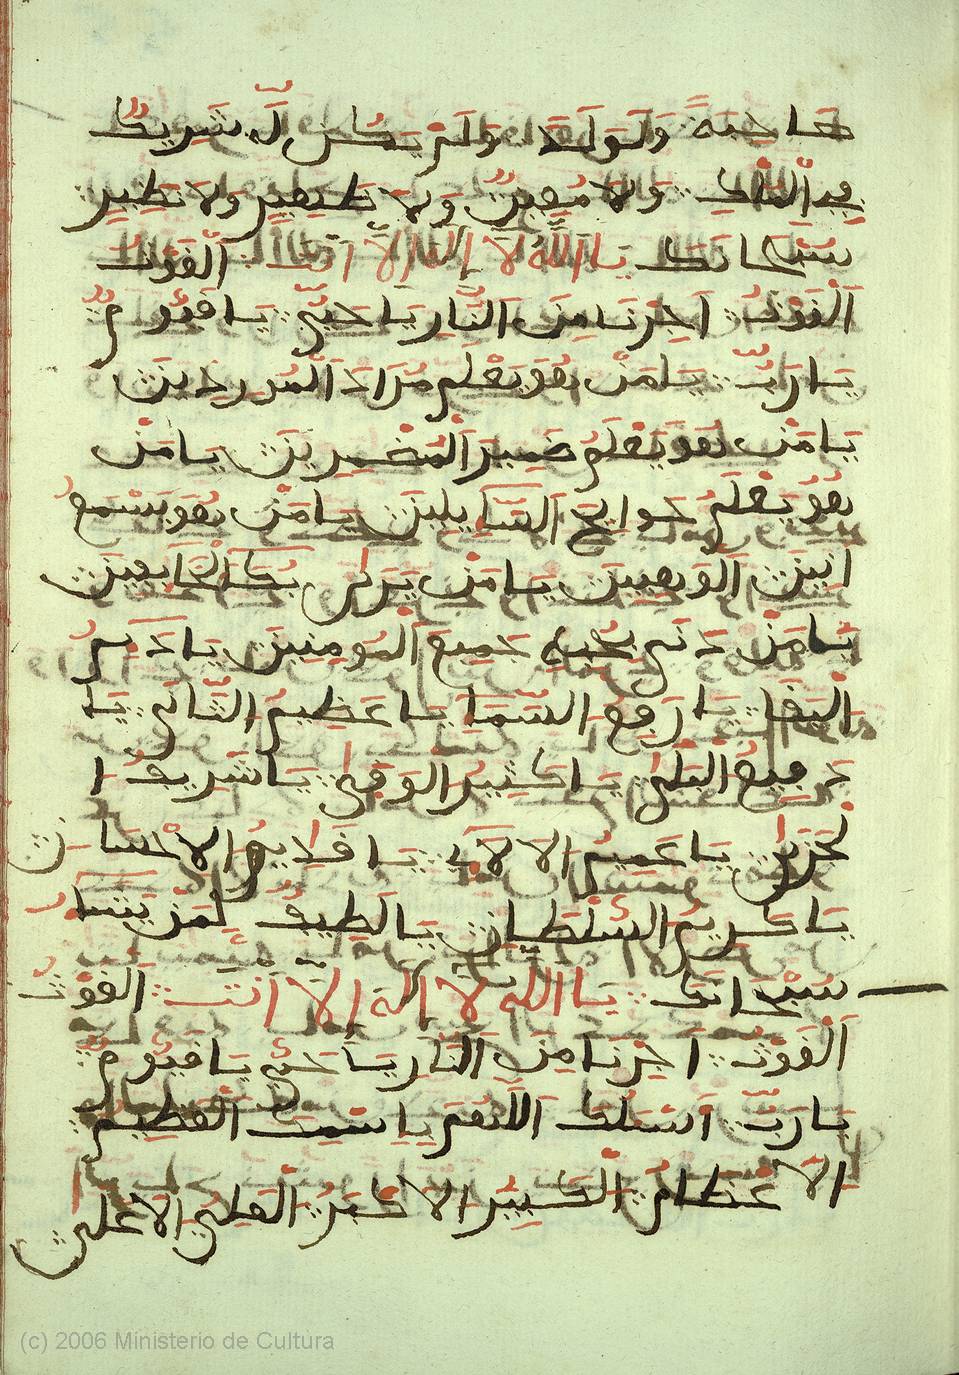 صاحبة ولا ولدا ولم يكن له شريكا
في الملك ولا معين ولا ظهير ولا نظير
سبحانك يا الله لا إله إلا أنت الغوث
الغوث اجرنا من النار يا حي يا قيوم
يا رب يا من هو يعلم مراد المريدين
يا من هو يعلم ضمير المضمرين يا من
هو يعلم حوايج السايلين يا من هو يسمع
انين الوهنين يا من يرى بكا الخايفين
يا من
البقا يا
يا عظيم الثنا يا
يا كثير الوفى يا شريف ا
لجزى يا عميم الالا يا قديم الاحسان
يا كريم السلطان يا لطيف لمن يشا
سبحانك يا الله لا إله إلا أنت الغوث
الغوث اجرنا من النار يا حي يا قيوم
يا رب اسئلك اللهم باسمك العظيم
الاعظام الكبير الاكبر العلي الاعلى
(c) 2006 Ministerio de Cultura